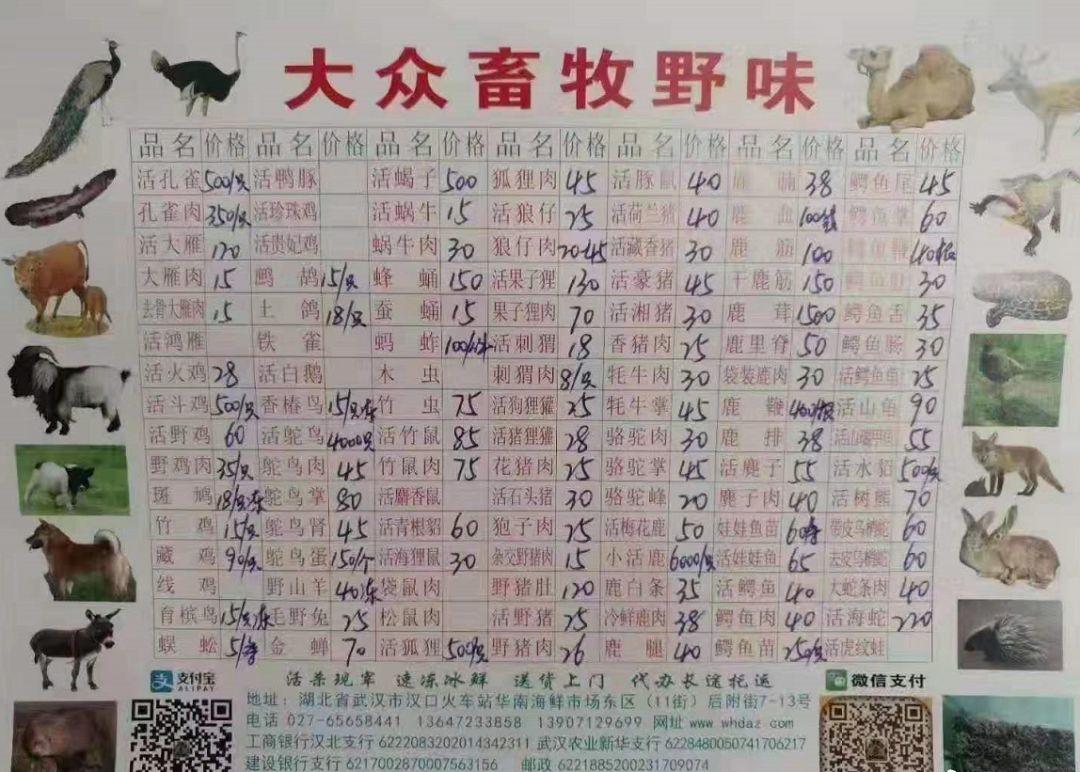 大众畜牧野味
品名 价格 品名 价格 品名 价格 品名 价格 品名 价格 品名 价格 品名 价格
活孔雀 500/只 活鸭豚 活蝎子 500 狐狸肉 45 活豚鼠 40 鹿 38 鳄鱼尾 45
孔雀肉 350/只 活珍珠鸡 活蜗牛 15 活狼仔 25 活荷兰猪 40 鹿血 鳄鱼掌 60
活大雁 120 活贵妃鸡 蜗牛肉 30 狼仔肉 20-45 活藏香猪 30 鹿筋 100 鳄鱼鞭
大雁肉 15 鹧鸪 15/只 蜂蛹 150 活果子狸 130 活豪猪 45 干鹿筋 150 鳄鱼肚 30
去骨大雁肉 15 土鸽 18/只 蚕蛹 15 果子狸肉 70 活湘猪 30 鹿茸 1500 鳄鱼舌 35
活鸿雁 铁雀 蚂蚱 活刺猬 18 香猪肉 25 鹿里脊 50 鳄鱼肠 30
活火鸡 28 活白鹅 木虫 刺猬肉 8/只 牦牛肉 30 袋装鹿肉 30 活鳄鱼龟 25
活斗鸡 500/只 香椿鸟 15/只冻 竹虫 75 活狗狸獾 25 牦牛掌 45 鹿鞭 活山龟 90
活野鸡 60 活鸵鸟 4000只 活竹鼠 85 活猪狸獾 28 骆驼肉 30 鹿排 38 55
野鸡肉 35/只 鸵鸟肉 45 竹鼠肉 75 花猪肉 25 骆驼掌 45 活麂子 55 活水貂 500/只
斑鸠 18/只冻 鸵鸟掌 80 活麝香鼠 活石头猪 30 骆驼峰 20 麂子肉 40 活树熊 70
竹鸡 15/只 鸵鸟肾 45 活青根貂 60 狍子肉 25 活梅花鹿 50 娃娃鱼苗 带皮乌梢蛇 60
藏鸡 90/只 鸵鸟蛋 150/个 活海狸鼠 30 杂交野猪肉 15 小活鹿 6000/只 活娃娃鱼 65 去皮乌梢蛇 60
线鸡 野山羊 40冻 袋鼠肉 野猪肚 120 鹿白条 35 活鳄鱼 40 大蛇条肉 40
育槟鸟 15/只冻 毛野兔 25 松鼠肉 活野猪 25 冷鲜鹿肉 38 鳄鱼肉 40 活海蛇 220
蜈蚣 金蝉 70 活狐狸 500/只 野猪肉 26 鹿腿 40 鳄鱼苗 250/只 活虎纹蛙
支付宝
ALIPAY
活杀现宰 速冻冰鲜 送货上门 代办长途托运
微信支付
地址：湖北省武汉市汉口火车站华南海鲜市场东区（11街）后附街7-13号
电话 027-65658441 13647233858 13907129699 网址 www whdaz com
工商银行汉北支行 6222083202014342311 武汉农业新华支行 6228480050741706217
建设银行支行 6217002870007563156 邮政 6221885200231709074